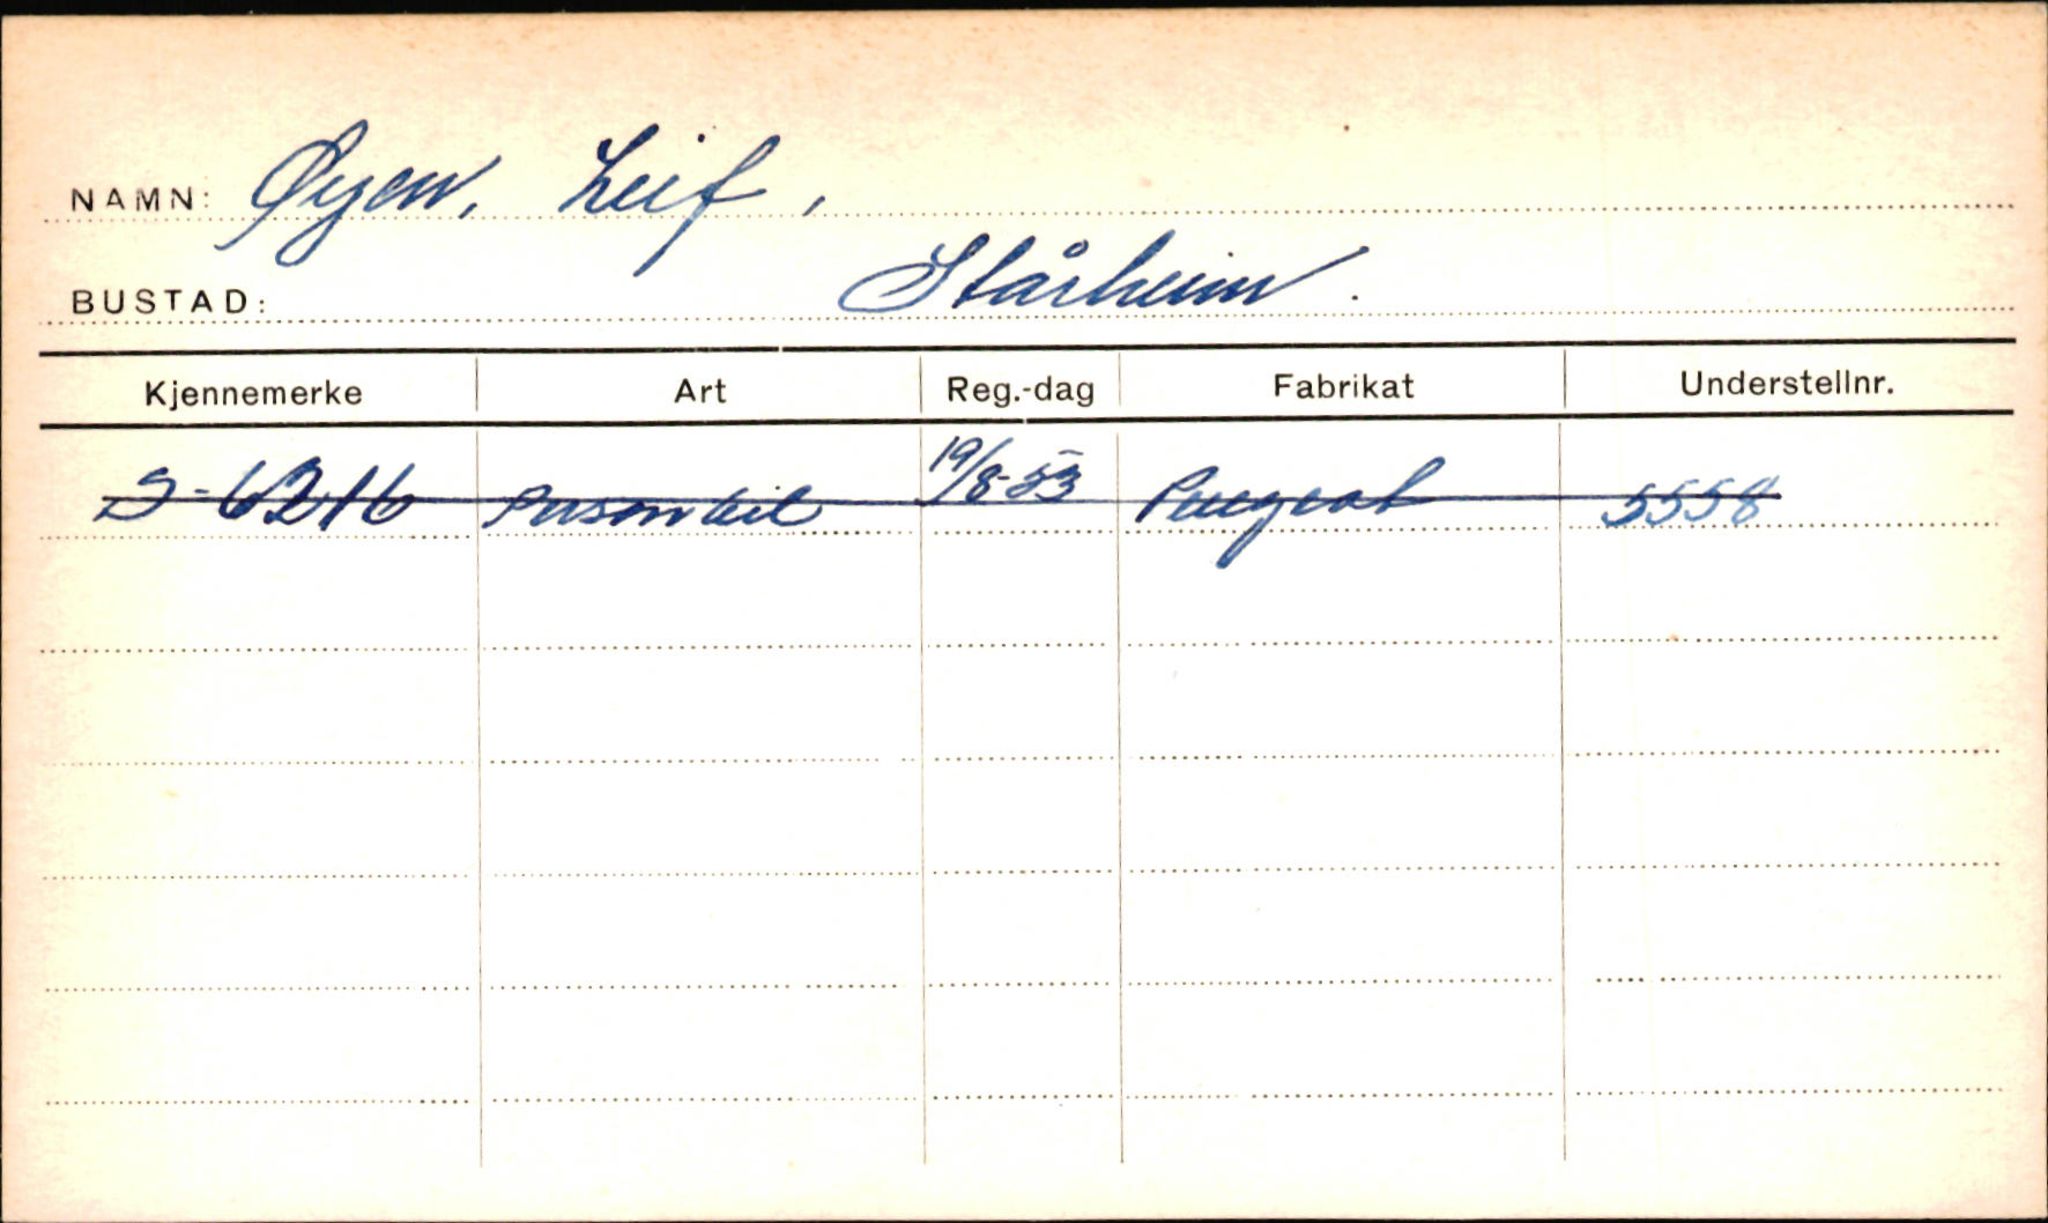 NAMN: Øyen, Leif,
BUSTAD: Stårheim.
Kjennemerke Art Reg.-dag Fabrikat Understellnr.
S-6216 Personbil 19/8-53 Peugeot 5558